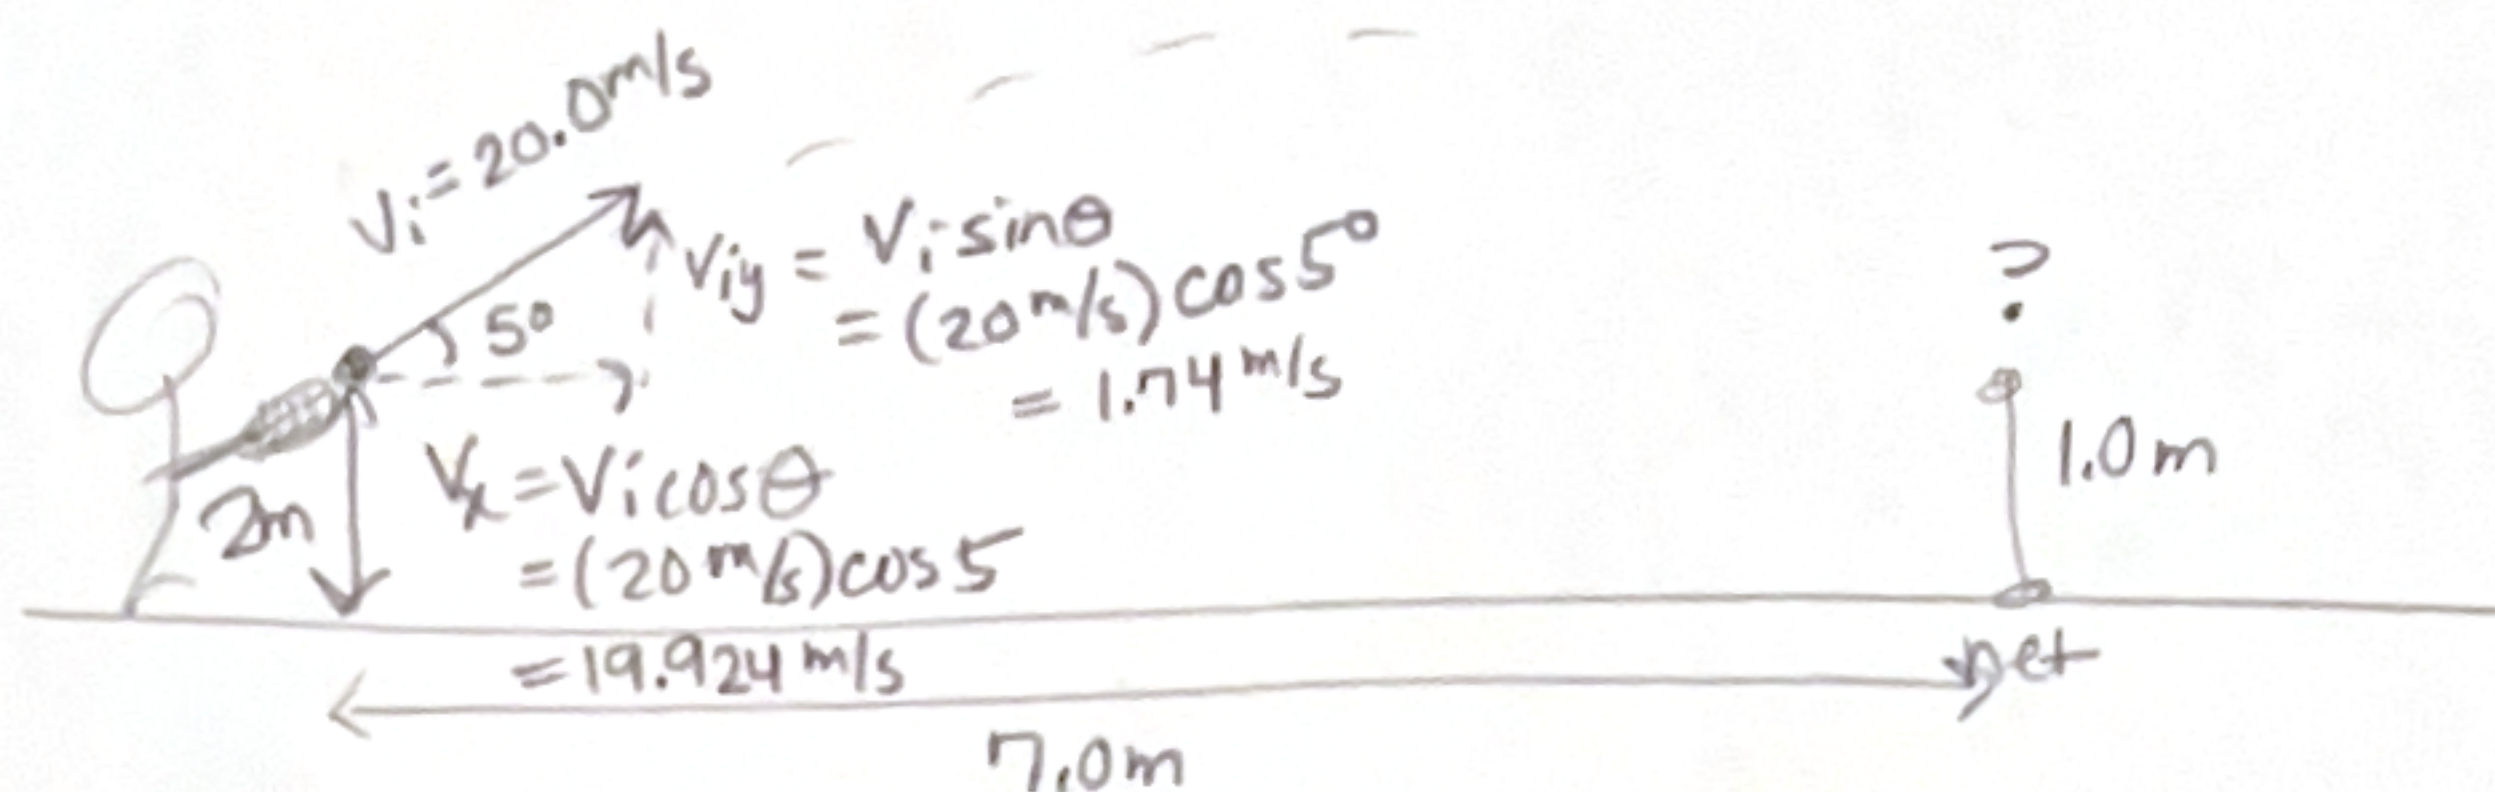 Vi = 20.0 m/s
5°
Viy = Vi sinθ
= (20 m/s) cos 5°
= 1.74 m/s
?
1.0 m
2m
Vx = Vi cosθ
= (20 m/s) cos 5
= 19.924 m/s
net
7.0 m